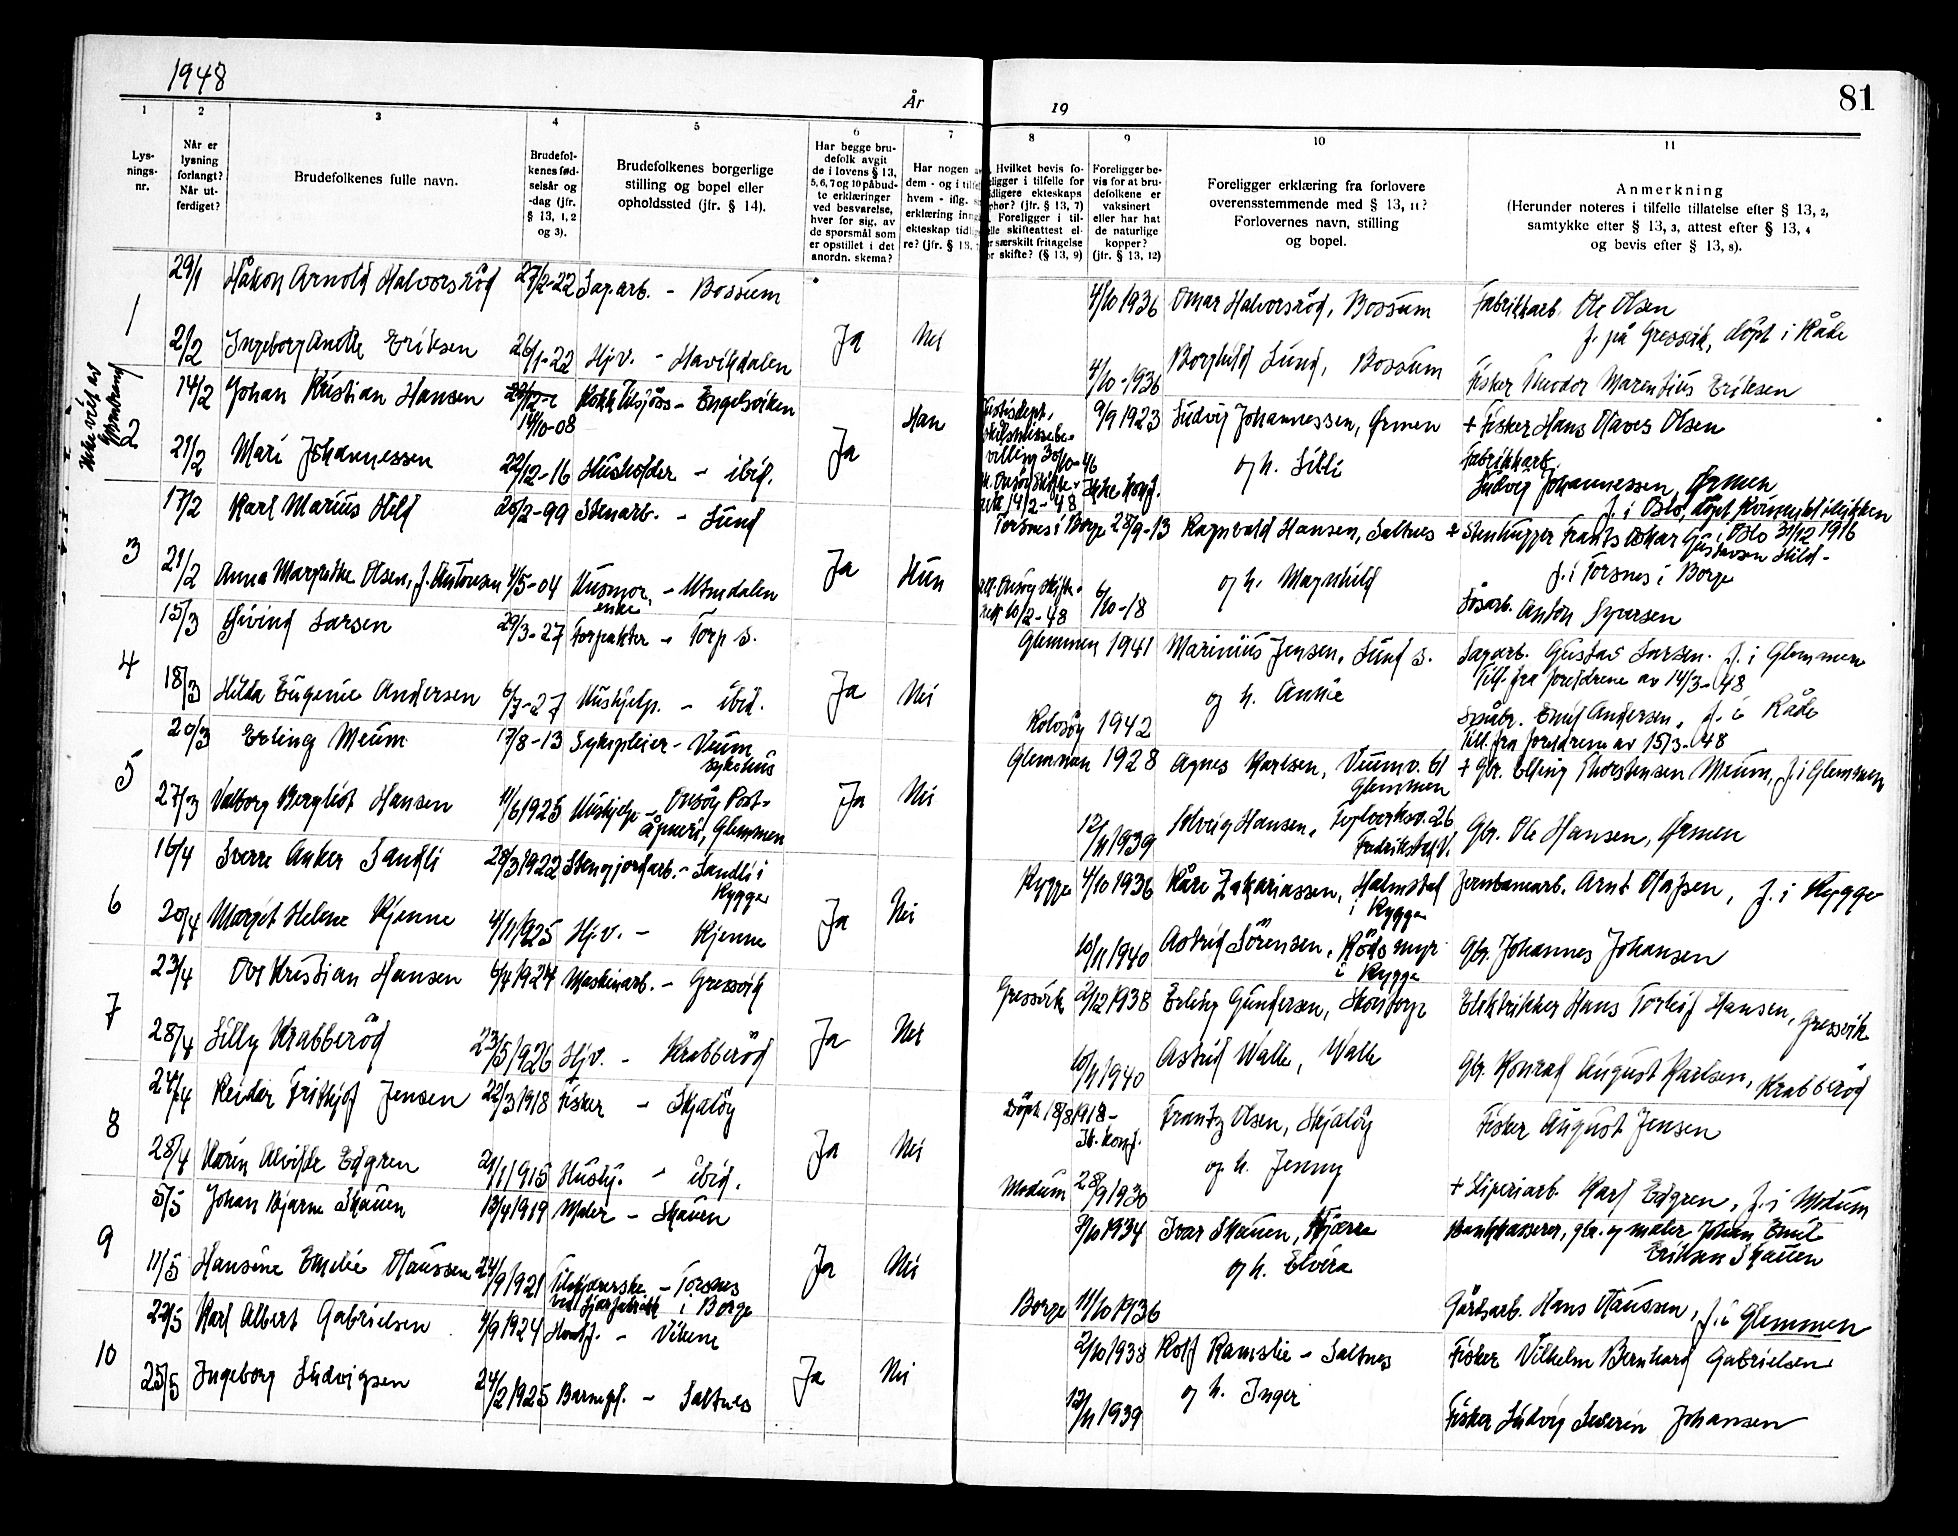 1948
År
19
81
1
2
3
4
5
6
7
8
9
10
11
Lys-
nings-
nr.
Når er
lysning
forlangt?
Når ut-
ferdiget?
Brudefolkenes fulle navn.
Brudefol-
kenes fød-
selsår og
-dag (jfr.
§ 13, 1, 2
og 3).
Brudefolkenes borgerlige
stilling og bopel eller
opholdssted (jfr. § 14).
Har begge bru-
defolk avgit
de i lovens § 13,
5, 6, 7 og 10 påbud-
te erklæringer
ved besvarelse,
hver for sig, av
de spørsmål som
er opstillet i det
anordn. skema?
Har nogen
dem - og i
hvem - iflg.
erklæring
ekteskap
re? (jfr. § 13,
Hvilket bevis fo-
religger i tilfelle for
tidligere ekteskaps
ophør? (jfr. § 13, 7)
Foreligger i til-
skifteattest el-
særskilt fritagelse
skifte? (§ 13, 9)
Foreligger be-
vis for at bru-
defolkene er
vaksinert
eller har hat
de naturlige
kopper?
(jfr. § 13, 12)
Foreligger erklæring fra forlovere
overensstemmende med § 13, 11?
Forlovernes navn, stilling
og bopel.
Anmerkning
(Herunder noteres i tilfelle tillatelse efter § 13, 2,
samtykke efter § 13, 3, attest efter § 13, 4
og bevis efter § 13, 8).
1
29/1 Håkon Arnold Halvorsröd 27/2-22 Sag.arb. - Bossum 4/10 1936 Omar Halvorsröd, Bossum Fabrikkarb. Ole Olsen
2/2 Ingeborg Anette Eriksen 26/1-22 Hj.v. - Havikdalen Ja Nei 4/10-1936 Borghild Lund, Bossum f. på Gressvik, döpt i Råde
Fisker Theodor Marentius Eriksen
Ikke viet av
2
14/2 Johan Kristian Hansen 14/10-08 Kokk tilsjøss - Engelsviken Han 9/9 1923 Ludvig Johannessen, Ørmen + Fisker Hans Olaves Olsen
21/2 Mari Johannessen 22/12-16 Husholder - ibid. Ja 14/2-48 Ikke konf. og h. Lilli Fabrikkarb.
Ludvig Johannessen, Ørmen
f. i Oslo, döpt
i Oslo 31/12 1916
3
17/2 Karl Marius Hild 26/2-99 Stenarb. - Lund Torsnes i Borge 28/9-13 Ragnvald Hansen, Saltnes + Stenhugger Frants Oskar Gustavsen Hild -
f. i Torsnes i Borge
21/2 Anna Margrethe Olsen, f. Antonsen 4/5-04 Husmor, enke - Ja Hun 10/2-48 6/10-18 og h. Magnhild Anton Syversen
4
15/3 Øivind Larsen 29/3-27 Forpakter - Torp s. Glemmen 1941 Marinius Jensen, Lund s. Sagarb. Gustav Larsen. f. i Glemmen
Till. fra foreldrene av 14/3-48
18/3 Hilda Eugenie Andersen 6/7-27 Hushjelp. - ibid. Ja Nei 1942 og h. Annie Småbr. Emil Andersen, f. i Råde
Till. fra foreldrene av 15/3-48
5
20/3 Erling Meum 17/8-13 Sykepleier - Veum
sykehus Glemmen 1928 Agnes Karlsen, Veumv. 61
Glemmen + Gbr. Elling Thorstensen Meum, f. i Glemmen
27/3 Valborg Bergliot Hansen 11/6 1925 Hushjelp - Onsöy Post-
åpneri, Glemmen Ja Nei 12/11 1939 Solveig Hansen, Teglverksv. 26
Fredrikstad V. Gbr. Ole Hansen, Ørmen
6
16/4 Sverre Anker Sandli 28/3 1922 Stengjordarb. - Sandli i
Rygge Rygge 4/10 1936 Kåre Zakariassen, Halmstad
i Rygge Jernbanearb. Arnt Olafsen, f. i Rygge
20/4 Margit Helene Kjenne 4/11 1925 Hj.v. - Kjenne Ja Nei 10/11 1940 Astrid Sörensen, Rödsmyr
i Rygge Gbr. Johannes Johansen
7
23/4 Ove Kristian Hansen 6/4 1924 Maskinarb. - Gressvik Gressvik 2/12 1938 Erling Gundersen, Skovtorp Elektrikker Hans Torleif Hansen, Gressvik
28/4 Lilly Krabberöd 23/5 1926 Hj.v. - Krabberöd Ja Nei 10/11 1940 Astrid Walle, Walle Gbr. Konrad August Karlsen, Krabberöd
8
24/4 Reidar Frithjof Jensen 22/3 1918 Fisker - Skjalöy Döpt 18/8 1918 -
Ik. konf. Frantz Olsen, Skjalöy Fisker August Jensen
28/4 Karin Alvilde Edgren 21/1 1915 Hush. - ibid. Ja Nei Modum 28/9 1930 og h. Jenny + Sliperiarb. Karl Edgren, f. i Modum
9
5/5 Johan Bjarne Skauen 13/4 1919 Maler - Skauen 7/10 1934 Ivar Skauen, Kjærre Bankkasserer, gbr. og maler Johan Emil
Eriksen Skauen
11/5 Hansine Emelie Claussen 24/9 1921 - Torsnes
i Borge Ja Nei Borge 11/10 1936 og h. Elvira Gårdsarb. Hans Claussen, f. i Glemmen
10
22/5 Karl Albert Gabrielsen 4/9 1924 - Vikene 2/10 1938 Rolf Ramslie - Saltnes Fisker Vilhelm Bernhard Gabrielsen
25/5 Ingeborg Ludvigsen 24/2 1925 Barnepl. - Saltnes Ja Nei 12/11 1939 og h. Inger Fisker Ludvig Severin Johansen